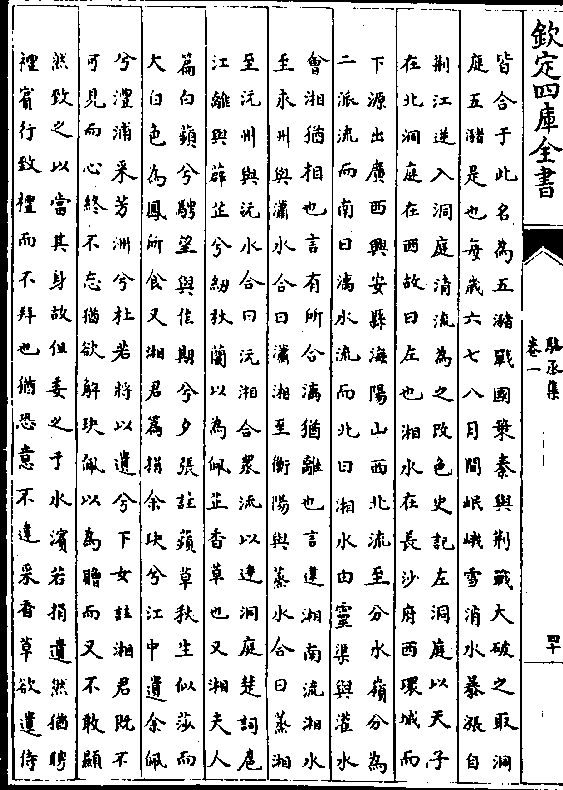 欽定四庫全書
駱丞集
卷一
四十
皆合于此名為五瀦戰國策秦與荆戰大破之取洞
庭五瀦是也每歲六七八月間岷峨雪消水暴漲自
荆江逆入洞庭清流為之改色史記左洞庭以天子
在北洞庭在西故曰左也湘水在長沙府西環城而
下源出廣西興安縣海陽山西北流至分水嶺分為
二派流而南曰漓水流而北曰湘水由靈渠與灌水
會湘猶相也言有所合漓猶離也言違湘南流湘水
至永州與瀟水合曰瀟湘至衡陽與蒸水合曰蒸湘
至沅州與沅水合曰沅湘合衆流以達洞庭楚詞扈
江離與薜芷兮紉秋蘭以為佩芷香草也又湘夫人
篇白蘋兮騁望與佳期兮夕張註蘋草秋生似莎而
大白色為鳳所食又湘君篇捐余玦兮江中遺余佩
兮澧浦采芳洲兮杜若將以遺兮下女註湘君既不
可見而心終不忘猶欲解玦佩以為贈而又不敢顯
然致之以當其身故但委之于水濱若捐遺然猶聘
禮賓行致禮而不拜也猶恐意不達采香草欲遺侍